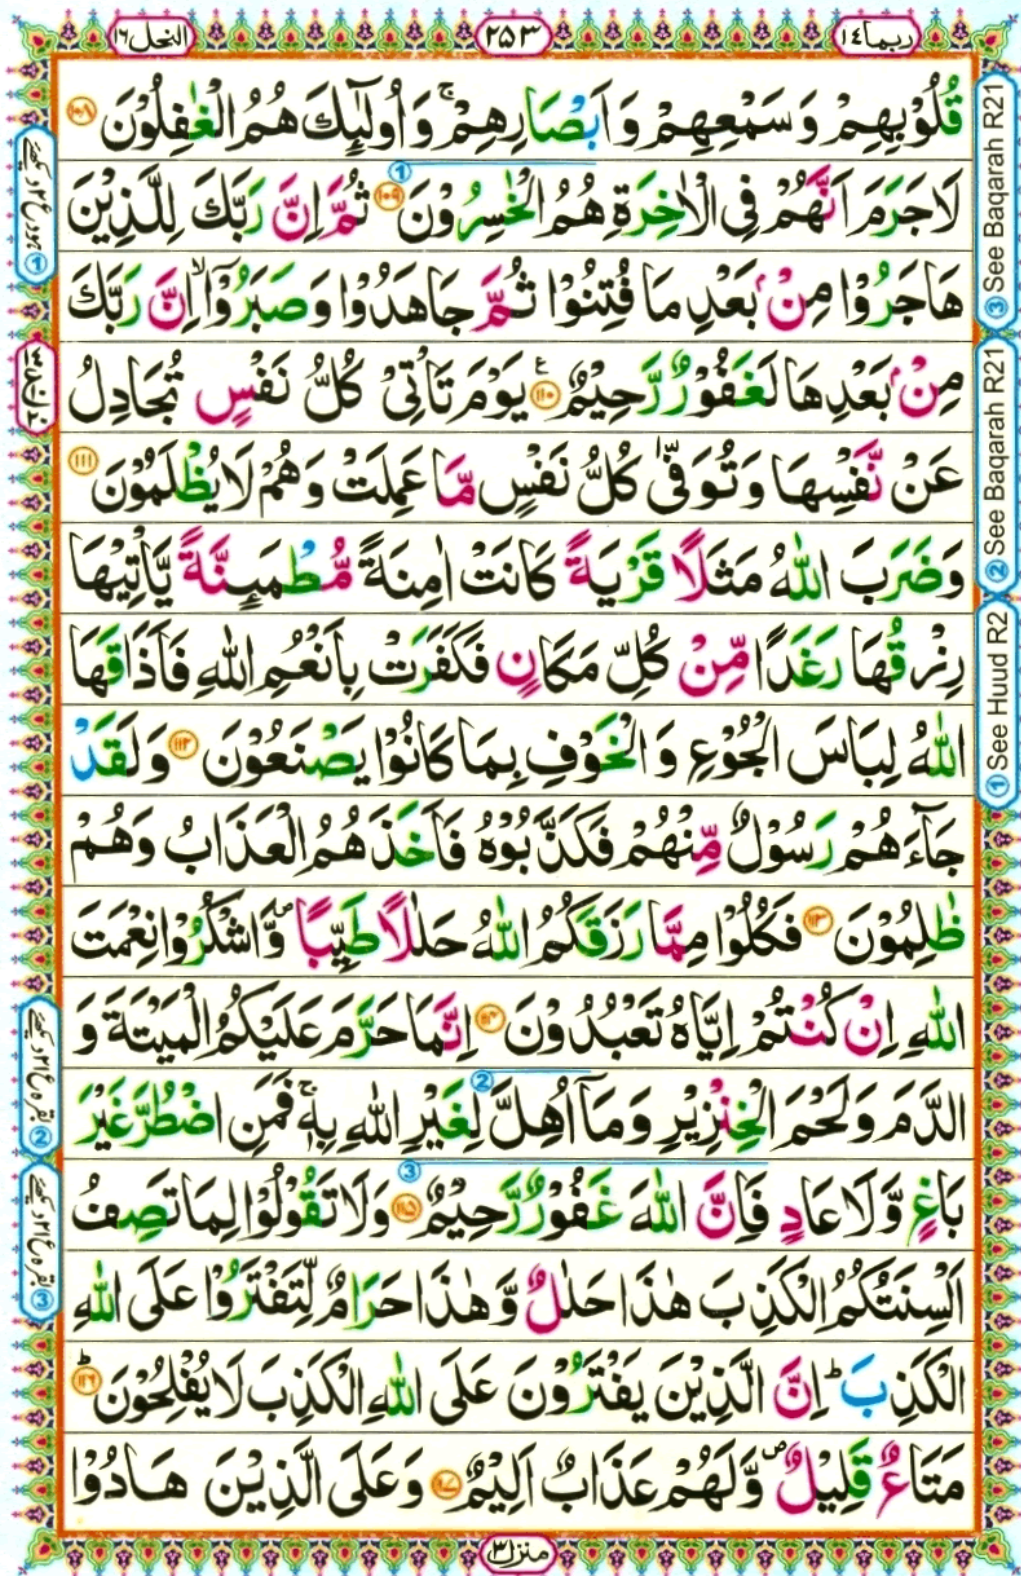 ربما ١٤
٢٥٣
النحل ١٦
قُلُوْبِهِمْ وَسَمْعِهِمْ وَاَبْصَارِهِمْ ۚ وَاُولٰٓئِكَ هُمُ الْغٰفِلُوْنَ ١٠٨
لَاجَرَمَ اَنَّهُمْ فِى الْاٰخِرَةِ هُمُ الْخٰسِرُوْنَ ١٠٩ ثُمَّ اِنَّ رَبَّكَ لِلَّذِيْنَ
هَاجَرُوْا مِنْۢ بَعْدِ مَا فُتِنُوْا ثُمَّ جَاهَدُوْا وَصَبَرُوْٓا ۙ اِنَّ رَبَّكَ
مِنْۢ بَعْدِهَا لَغَفُوْرٌ رَّحِيْمٌ ١١٠ ع يَوْمَ تَاْتِىْ كُلُّ نَفْسٍ تُجَادِلُ
عَنْ نَّفْسِهَا وَتُوَفّٰى كُلُّ نَفْسٍ مَّا عَمِلَتْ وَهُمْ لَا يُظْلَمُوْنَ ١١١
وَضَرَبَ اللّٰهُ مَثَلًا قَرْيَةً كَانَتْ اٰمِنَةً مُّطْمَئِنَّةً يَّاْتِيْهَا
رِزْقُهَا رَغَدًا مِّنْ كُلِّ مَكَانٍ فَكَفَرَتْ بِاَنْعُمِ اللّٰهِ فَاَذَاقَهَا
اللّٰهُ لِبَاسَ الْجُوْعِ وَالْخَوْفِ بِمَا كَانُوْا يَصْنَعُوْنَ ١١٢ وَلَقَدْ
جَآءَهُمْ رَسُوْلٌ مِّنْهُمْ فَكَذَّبُوْهُ فَاَخَذَهُمُ الْعَذَابُ وَهُمْ
ظٰلِمُوْنَ ١١٣ فَكُلُوْا مِمَّا رَزَقَكُمُ اللّٰهُ حَلٰلًا طَيِّبًا ۖ وَّاشْكُرُوْا نِعْمَتَ
اللّٰهِ اِنْ كُنْتُمْ اِيَّاهُ تَعْبُدُوْنَ ١١٤ اِنَّمَا حَرَّمَ عَلَيْكُمُ الْمَيْتَةَ وَ
الدَّمَ وَلَحْمَ الْخِنْزِيْرِ وَمَآ اُهِلَّ لِغَيْرِ اللّٰهِ بِهٖ ۚ فَمَنِ اضْطُرَّ غَيْرَ
بَاغٍ وَّلَا عَادٍ فَاِنَّ اللّٰهَ غَفُوْرٌ رَّحِيْمٌ ١١٥ وَلَا تَقُوْلُوْا لِمَا تَصِفُ
اَلْسِنَتُكُمُ الْكَذِبَ هٰذَا حَلٰلٌ وَّهٰذَا حَرَامٌ لِّتَفْتَرُوْا عَلَى اللّٰهِ
الْكَذِبَ ؕ اِنَّ الَّذِيْنَ يَفْتَرُوْنَ عَلَى اللّٰهِ الْكَذِبَ لَا يُفْلِحُوْنَ ١١٦ ؕ
مَتَاعٌ قَلِيْلٌ ۖ وَّلَهُمْ عَذَابٌ اَلِيْمٌ ١١٧ وَعَلَى الَّذِيْنَ هَادُوْا
منزل ٣
③ See Baqarah R21
② See Baqarah R21
① See Huud R2